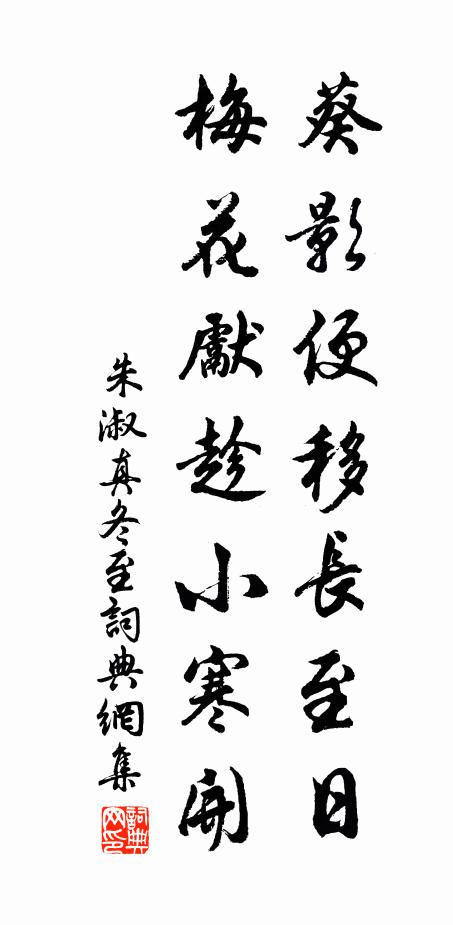 葵影便移長至日
梅花獻趁小寒開
朱淑真冬至詞典網集
詞典網印